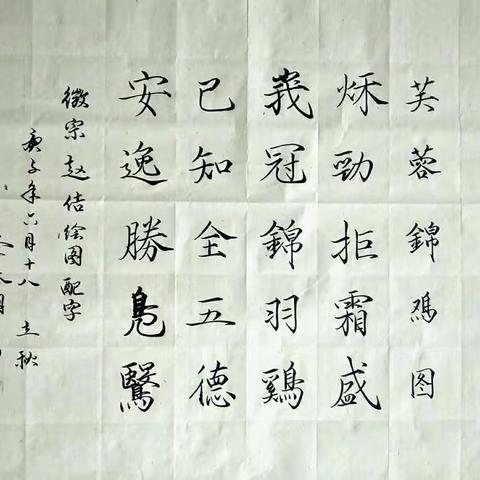 芙蓉錦鸡图
秌勁拒霜盛
峩冠錦羽鷄
已知全五德
安逸勝鳧鷖
徽宗赵佶绘图配字
庚子年六月十八 立秋